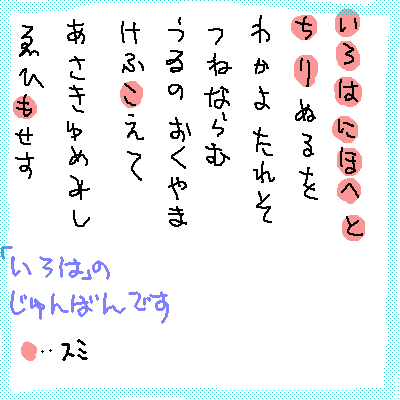 いろはにほへと
ちりぬるを
わかよたれそ
つねならむ
うゐのおくやま
けふこえて
あさきゆめみし
ゑひもせす
「いろは」の
じゅんばんです
●‥スミ